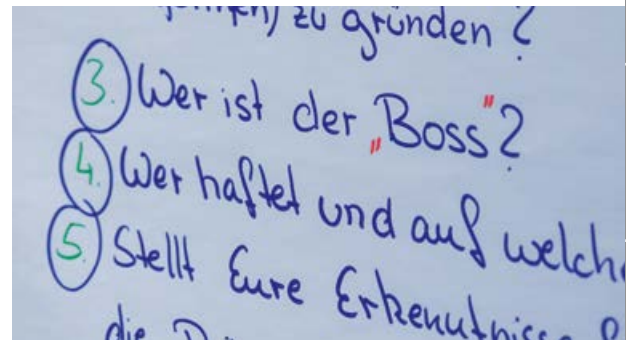 zu gründen?
3. Wer ist der „Boss"?
4. Wer haftet und auf
5. Stellt Eure Erkenntnisse
die